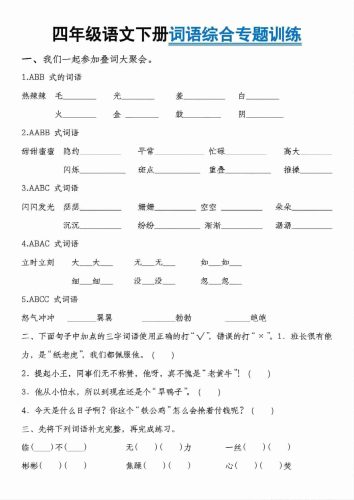 四年级语文下册词语综合专题训练
一、我们一起参加叠词大聚会。
1.ABB 式的词语
热辣辣 毛________ 光________ 羞________ 白________
火________ 金 ________ 鼓________ 阴________
2.AABB 式词语
甜甜蜜蜜 隐约________ 平常________ 忙碌________ 高大________
闪烁________ 斑点________ 重叠________ 推搡________
3.AABC 式词语
闪闪发光 瑟瑟________ 姗姗________ 空空 ________ 朵朵________
沉沉________ 纷纷________ 渐渐________ 潺潺________
4.ABAC 式词语
立时立刻 大___大___ 无___无___ 如___如___
细___细___ 没___没___ 忽___忽___
5.ABCC 式词语
怒气冲冲 ________翼翼 ________勃勃 ________皑皑
二、下面句子中加点的三字词语使用正确的打“√”，错误的打“×”。1．班长很有能
力，是“纸老虎”，我们都佩服他。（ ）
2．提起小王，同事们无不称赞，他呀，真不愧是“老黄牛”！（ ）
3．他从小怕水，所以到现在还是个“旱鸭子”。（ ）
4．今天是什么日子啊？你这个“铁公鸡”怎么会抢着付钱呢？（ ）
三、先将下列词语补充完整，再完成练习。
临(___)不(___) 无(___)(___)力 一丝(___)(___)
彬彬(___)(___) 焦躁(___)(___) 心(___)(___)焚